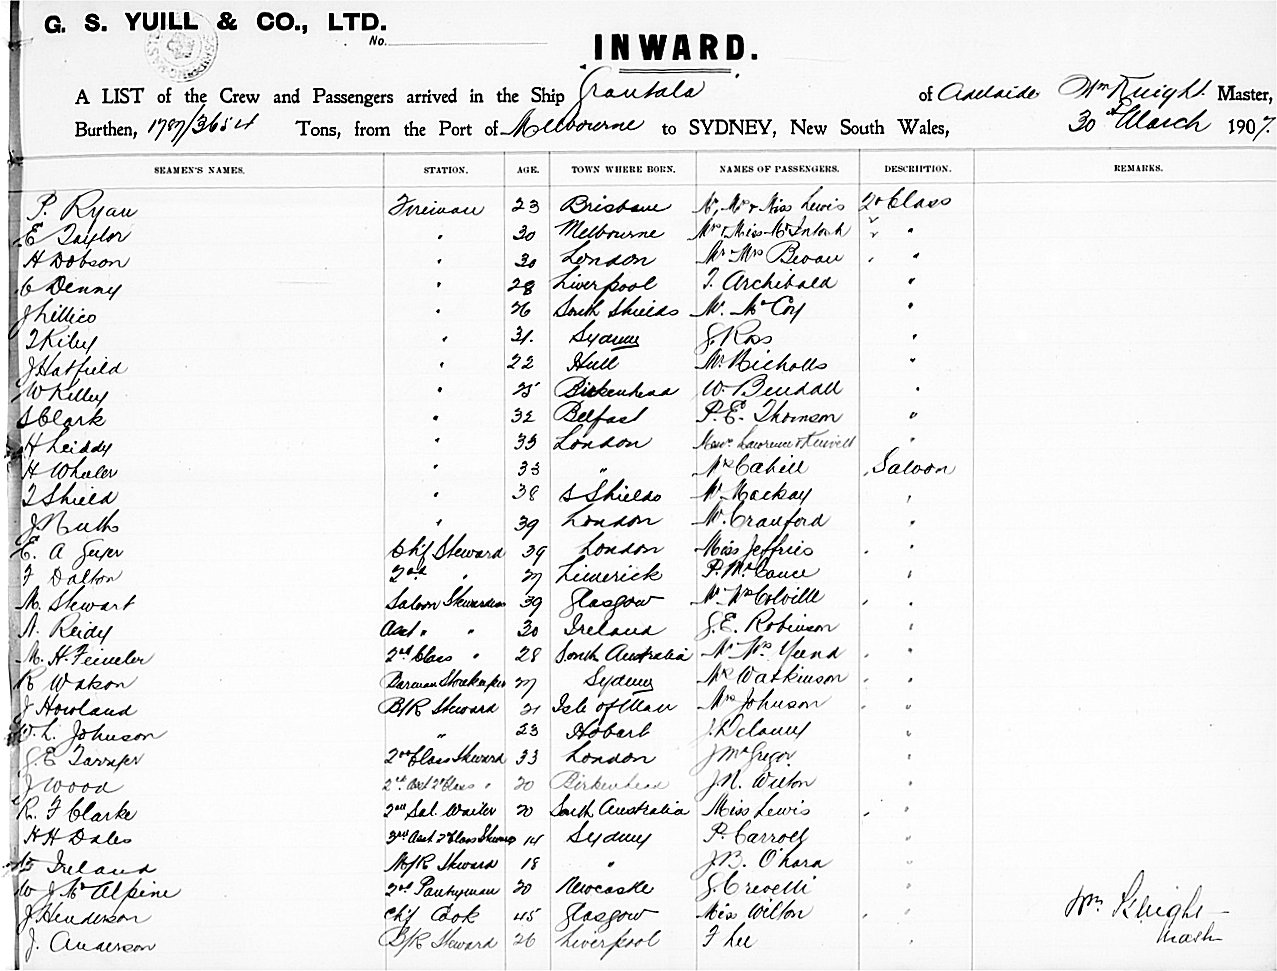 G. S. YUILL & CO., LTD.
No.
INWARD.
A LIST of the Crew and Passengers arrived in the Ship Grantala of Adelaide Wm Knight Master,
Burthen, 1787/3654 Tons, from the Port of Melbourne to SYDNEY, New South Wales, 30th March 1907.
SEAMEN'S NAMES. STATION. AGE. TOWN WHERE BORN. NAMES OF PASSENGERS. DESCRIPTION. REMARKS.
P. Ryan Fireman 23 Brisbane Mr, Mrs & Miss Lewis 2nd Class
E Taylor " 30 Melbourne Mrs & Miss McIntosh " "
H Dobson " 30 London Mr Mrs Bevan "
C Denny " 28 Liverpool T. Archibald "
J Lillico " 26 South Shields W. McCoy "
T Kiley " 31. Sydney J. Ross "
J Hatfield " 22 Hull W. Nicholls "
W Kelley " 25 Birkenhead W. Bendall "
S Clark " 32 Belfast P. E. Thomson "
H Leiddy " 35 London Lawrence & "
H Wheeler " 33 " Mrs Cahill Saloon
T Shield " 38 S Shields Mr Mackay "
J. " 39 London Mr. Cranford "
E. A Chf Steward 39 London Miss Jeffries "
F Dalton 2nd " 27 Limerick P. McCance "
M. Stewart Saloon Stewardess 39 Glasgow Mr Mrs Colville "
A. Reidy Asst " " 30 Ireland J. E. Robinson "
M. H. 2nd Class " 28 South Australia Mr Mrs "
R Watson Barman Storekeeper 27 Sydney Mrs Watkinson "
J Howland B/R Steward 21 Isle of Man Mrs Johnson "
W. L. Johnson " 23 Hobart J. Delaney "
G. E 2nd Class Steward 33 London J McGregor "
J Wood 2nd Asst 2nd Class " 20 Birkenhead J. N. Wilton "
R. F Clarke 2nd Sal. Waiter 20 South Australia Miss Lewis "
H H Dales 3rd Asst 2 Class Steward 14 Sydney P. Carroll "
Ireland M/R Steward 18 " J B. O'hara "
W J McAlpine 2nd Pantryman 20 Newcastle G. Crivelli "
J Henderson Chf Cook 45 Glasgow Miss Wilton "
J. Anderson B/R Steward 26 Liverpool F Lee "
Wm Knight
Master